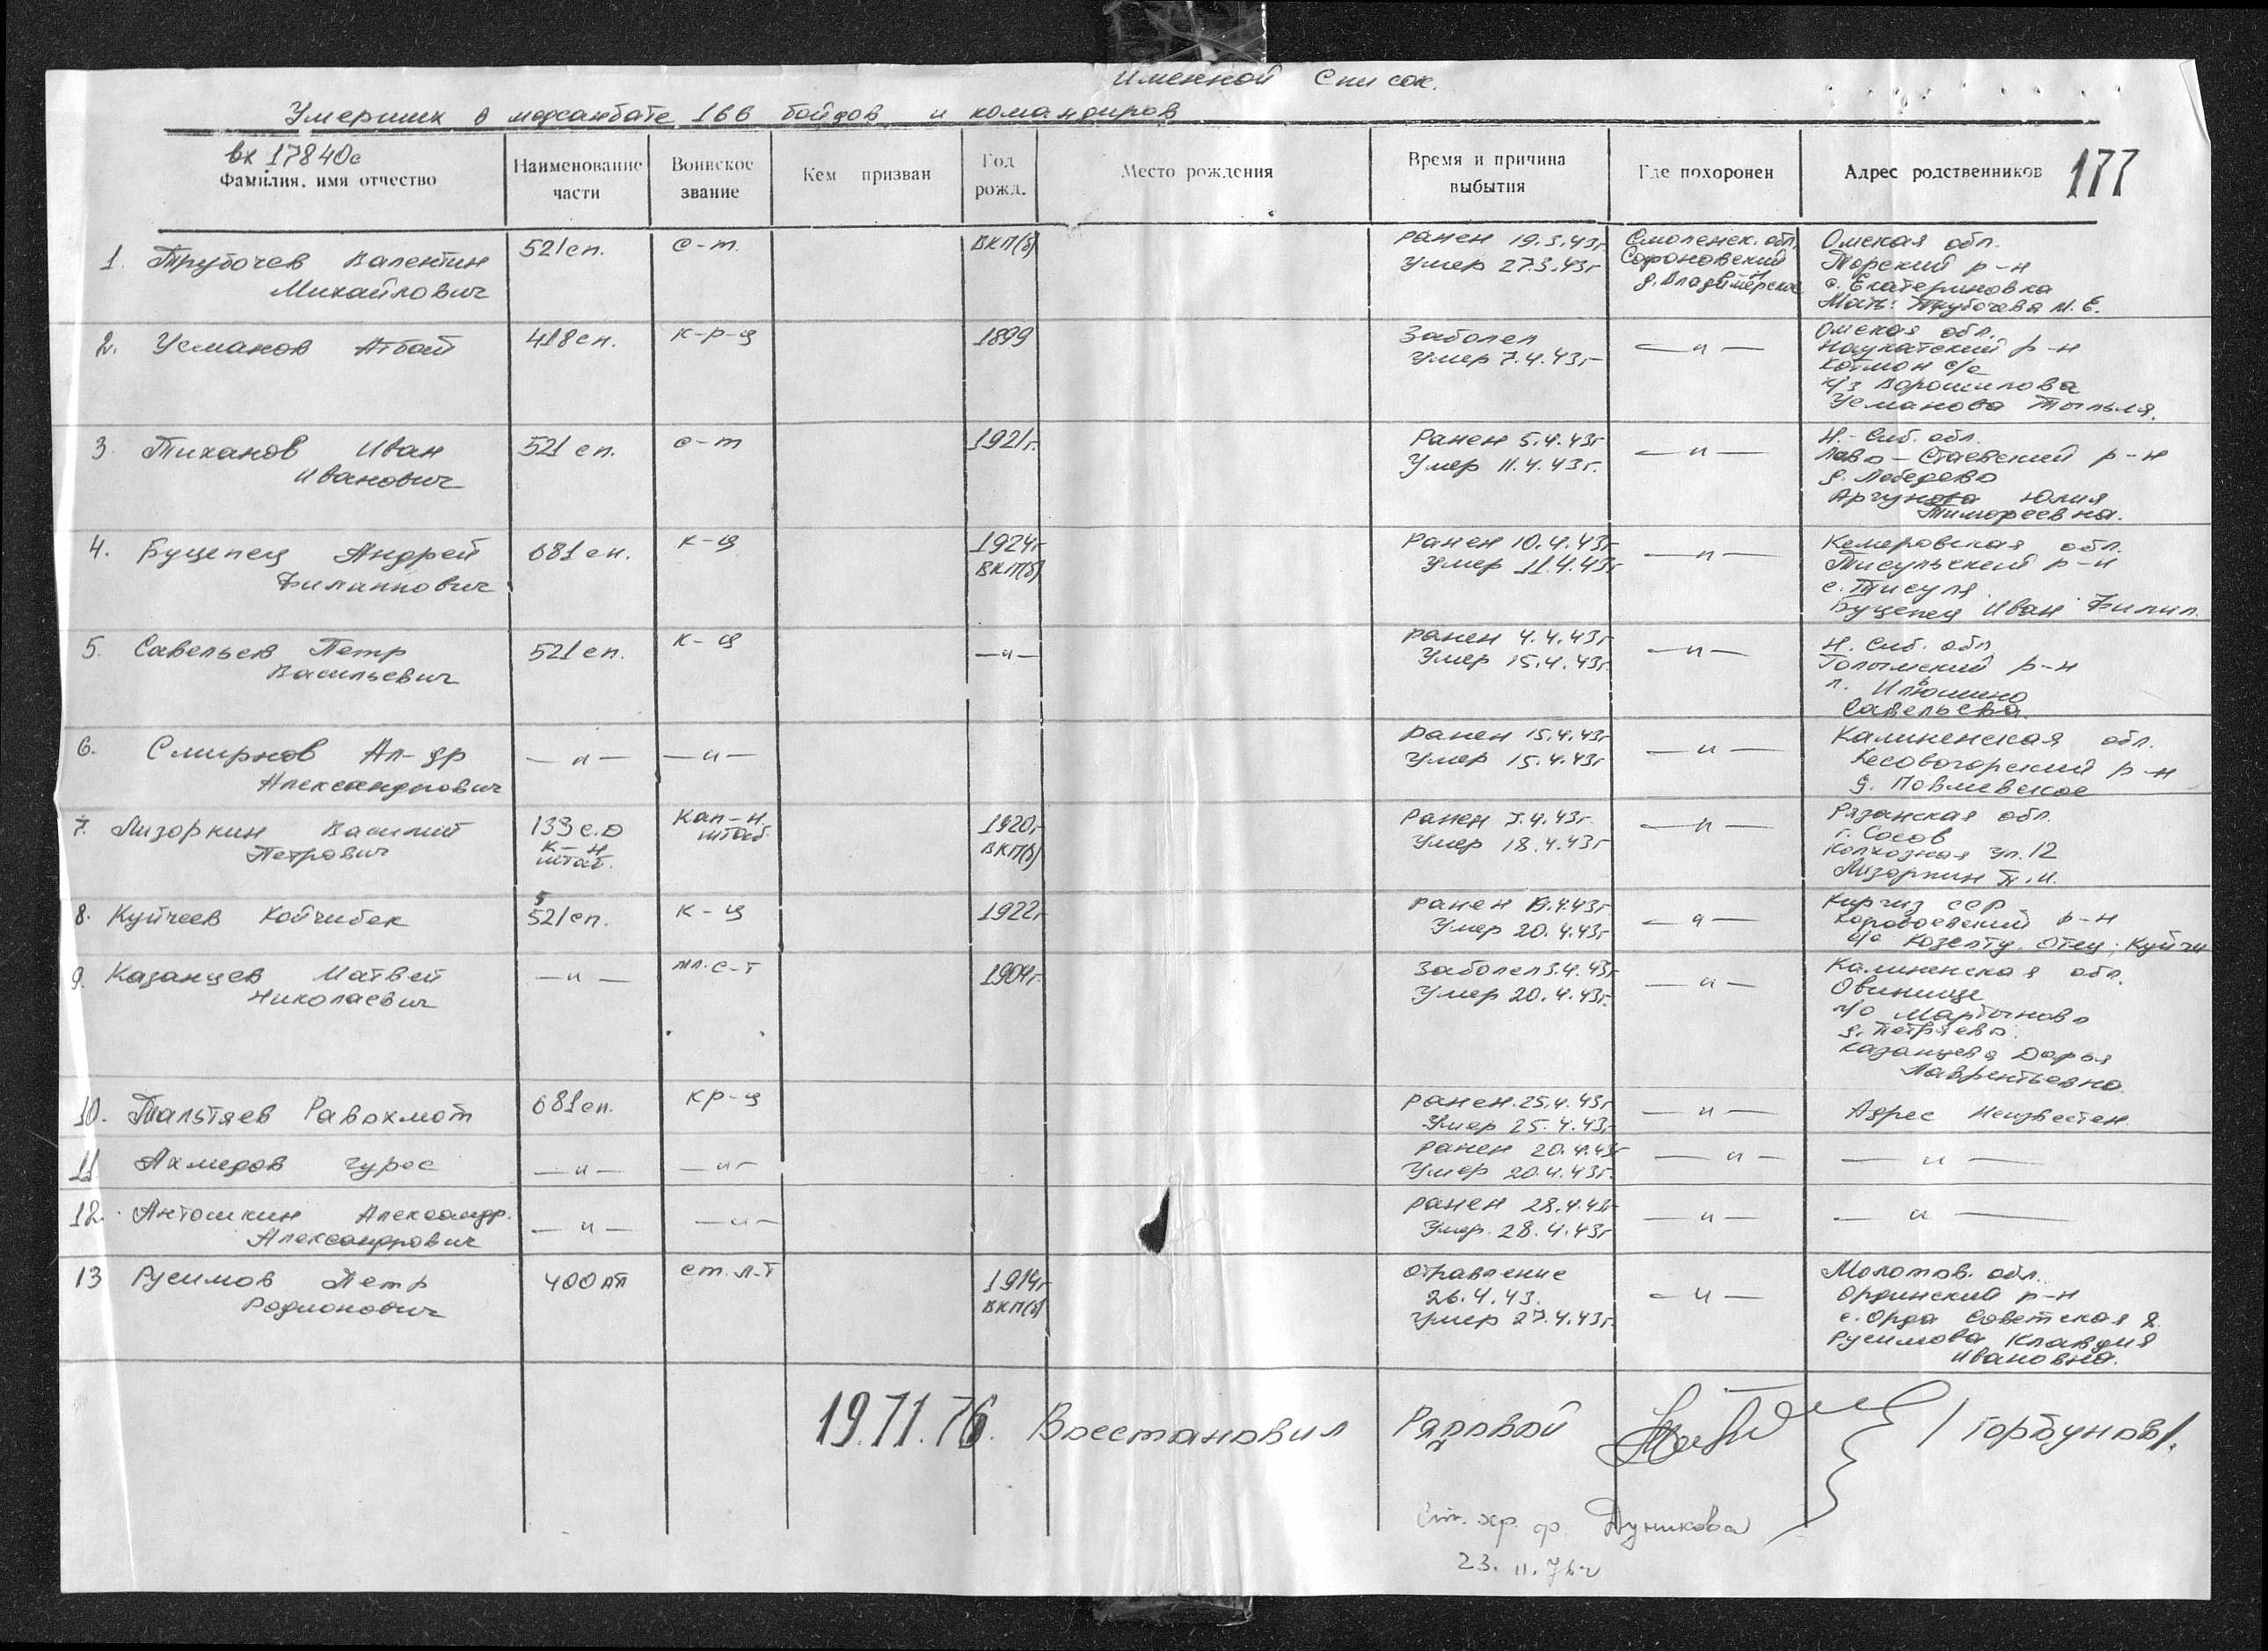 Именной Список.
Умерших в медсанбате 166 бойцов и командиров
вх 17840с
177
Фамилия, имя отчество
Наименование части
Воинское звание
Кем призван
Год рожд.
Место рождения
Время и причина выбытия
Где похоронен
Адрес родственников
1. Трубочев Валентин
Михайлович
521 сп.
с-т.
ВКП(б)
ранен 19.3.43г
Умер 27.3.43г
Смоленск. обл.
Сафоновский
д. Владимирское
Омская обл.
Торский р-н
с. Екатериновка
Мать: Трубочева М.Е.
2. Усманов Атбай
418 сп.
к-р-ц
1899
Заболел
Умер 7.4.43г
— и —
Омская обл.
Наукатский р-н
Котмон с/с
к/з Ворошилова
Усманова
3. Тиханов Иван
Иванович
521 сп.
с-т
1921г.
Ранен 5.4.43г
Умер 11.4.43г.
— и —
Н.-Сиб. обл.
р-н
д. Лебедево
Аргунова Юлия
Тимореевна.
4. Буцепец Андрей
Филиппович
681 сп.
к-ц
1924г
ВКП(б)
ранен 10.4.43г
Умер 11.4.43г
— и —
Кемеровская обл.
Тисульский р-н
с. Тисуля
Буцепец Иван Филип.
5. Савельев Петр
Васильевич
521 сп.
к-ц
— и —
ранен 4.4.43г
Умер 15.4.43г
— и —
Н. Сиб. обл
р-н
Савельева.
6. Смирнов Ал-др
Александрович
— и —
— и —
ранен 15.4.43г
Умер 15.4.43г
— и —
Калиненская обл.
Кесовогорский р-н
д. Повлевское
7. Лизоркин Василий
Петрович
133 с.д
к-н
штаб.
Кап-н.
штаб.
1920г
ВКП(б)
Ранен 7.4.43г.
Умер 18.4.43г
— и —
Рязанская обл.
г. Сасов
Колхозная ул. 12
Лизоркин П.И.
8. Куйчеев Койчибек
521 сп.
к-ц
1922г
ранен 19.4.43г
Умер 20.4.43г
— и —
Киргиз ССР
р-н
с/с Козелту. Отец: Куйчи
9. Казанцев Матвей
Николаевич
— и —
мл. с-т
1904г.
Заболел 3.4.43г
Умер 20.4.43г.
— и —
Калиненская обл.
Овинище
п/о Мартыново
д. Петряево.
Казанцева Дарья
Лаврентьевна.
10. Тальтяев Равохмот
681 сп.
кр-ц
ранен 25.4.43г
Умер 25.4.43г
— и —
Адрес неизвестен.
11 Ахмедов Чурос
— и —
— и —
ранен 20.4.43г
Умер 20.4.43г.
— и —
— и —
12. Антошкин Александр.
Александрович
— и —
— и —
ранен 28.4.43г
Умер. 28.4.43г
— и —
— и —
13 Русимов Петр
Родионович
400 ап
ст. л-т
1914г
ВКП(б)
отравление
26.4.43.
Умер 27.4.43г.
— и —
Молотов. обл.
Ординский р-н
с. Орда Советская 8
Русимова Клавдия
Ивановна.
19.11.76. Восстановил Рядовой /Горбунов/.
Ст. хр. ф. Дуникова
23.11.76г